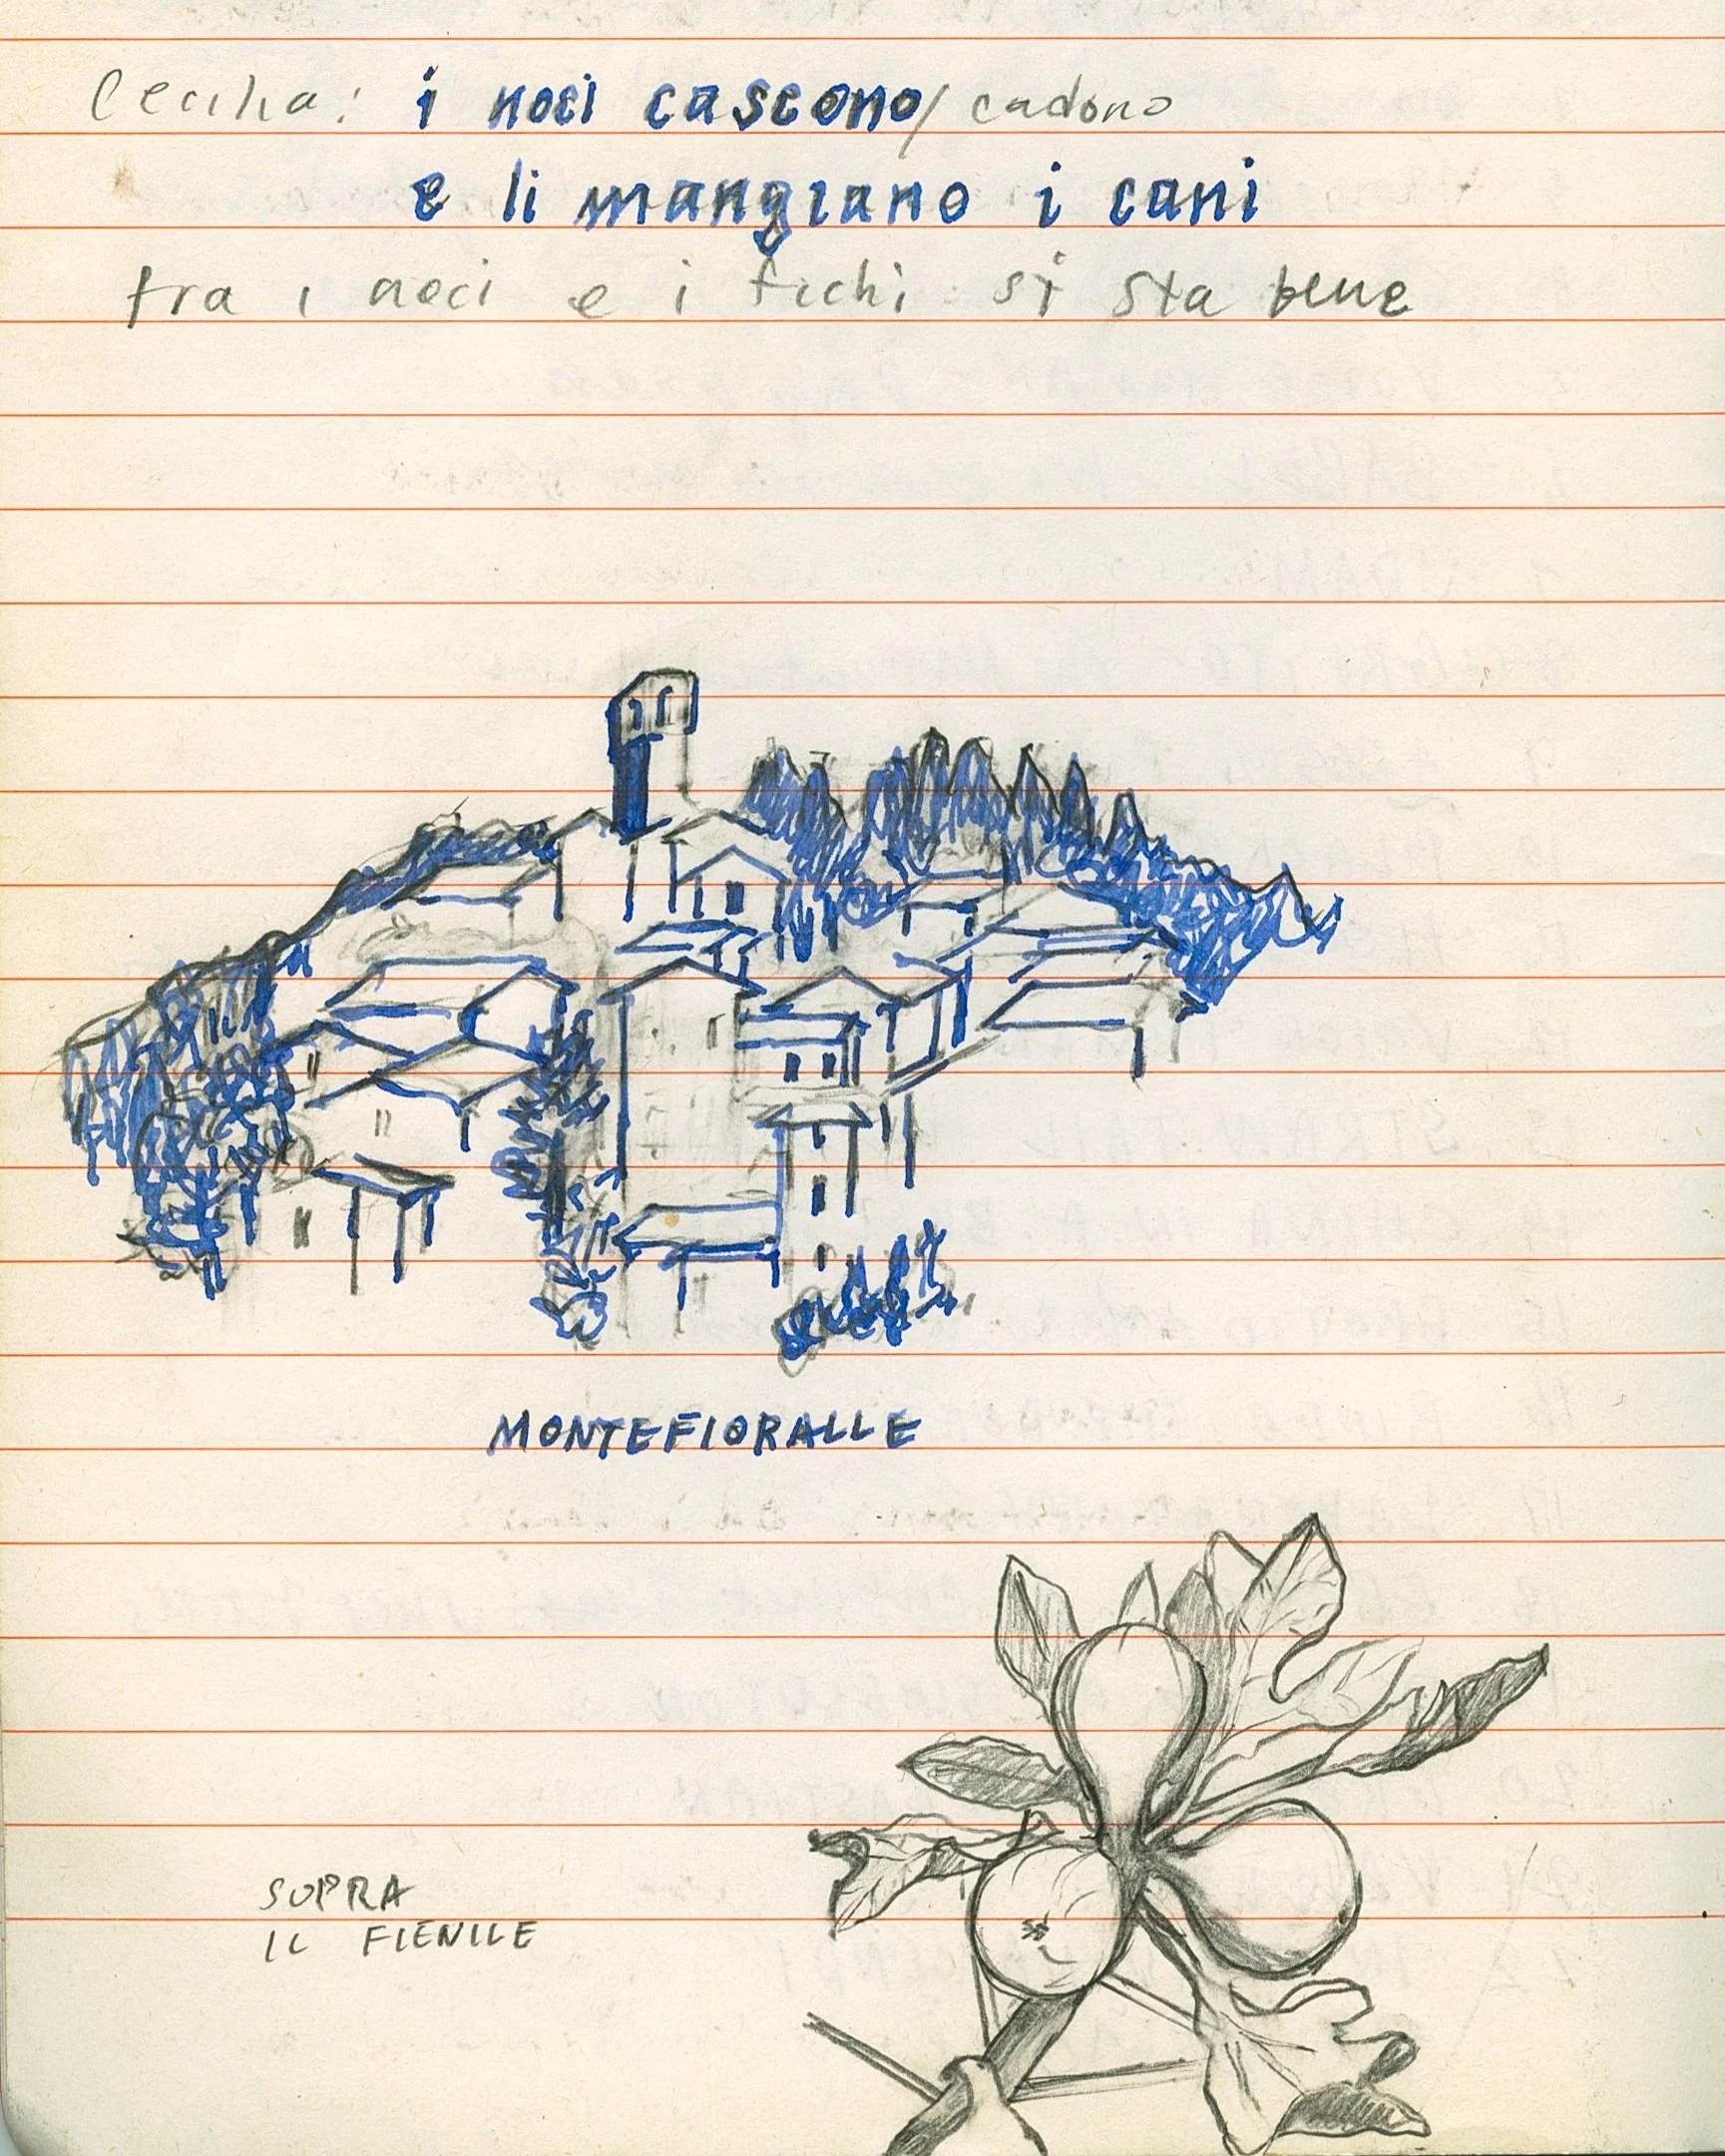 Cecilia: i noci cascono/ cadono
e li mangiano i cani
tra i noci e i fichi si sta bene
MONTEFIORALLE
SUPRA
IL FIENILE